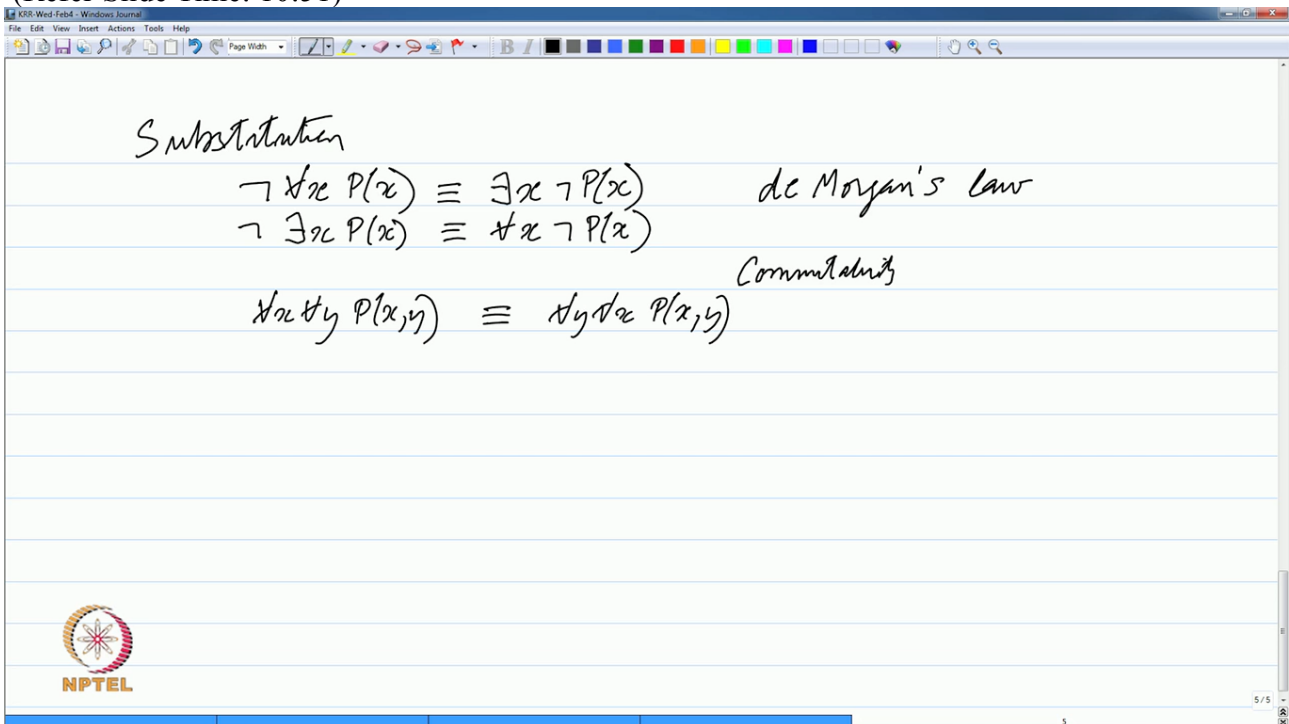 KRR-Wed-Feb4 - Windows Journal
File Edit View Insert Actions Tools Help
Page Width
B I
Substitution
¬ ∀x P(x) ≡ ∃x ¬ P(x) de Morgan's law
¬ ∃x P(x) ≡ ∀x ¬ P(x)
Commutativity
∀x ∀y P(x,y) ≡ ∀y ∀x P(x,y)
NPTEL
5 / 5
5